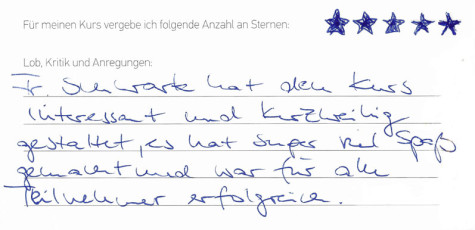 Für meinen Kurs vergebe ich folgende Anzahl an Sternen:
Lob, Kritik und Anregungen:
Fr. Schwark hat den Kurs
interessant und kurzweilig
gestaltet, es hat super viel Spaß
gemacht und war für alle
Teilnehmer erfolgreich.